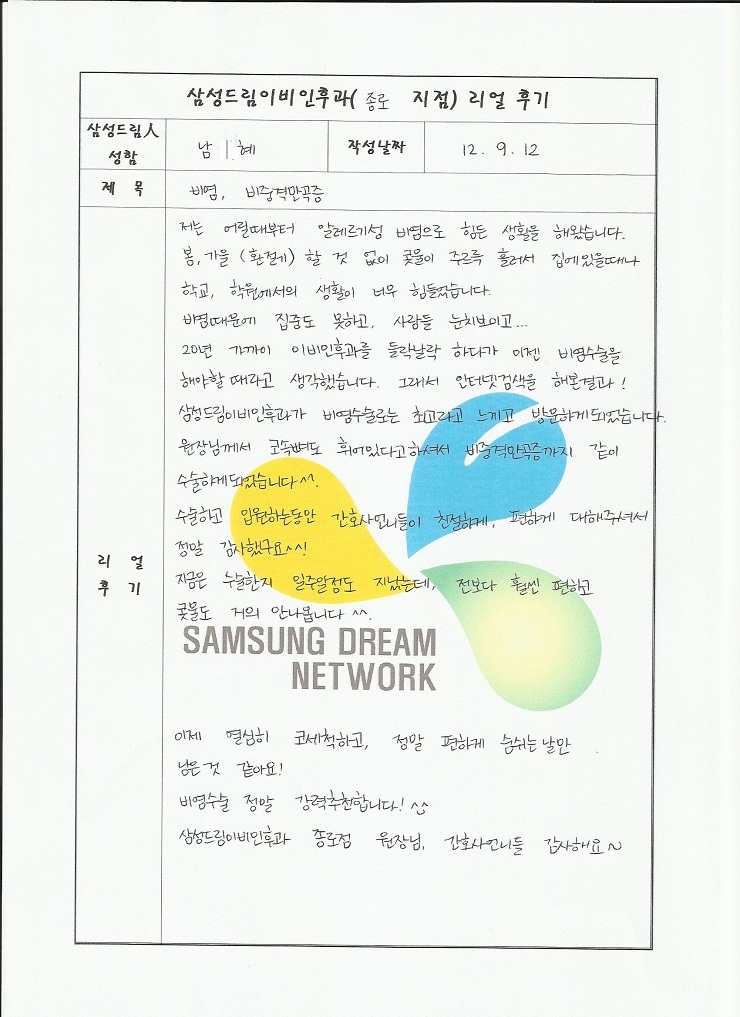 삼성드림이비인후과( 종로 지점) 리얼 후기
삼성드림人 성함
남 혜
작성날짜
12. 9. 12
제 목
비염, 비중격만곡증
리 얼 후 기
저는 어릴때부터 알레르기성 비염으로 힘든 생활을 해왔습니다.
봄, 가을 (환절기) 할 것 없이 콧물이 주르륵 흘러서 집에있을때나
학교, 학원에서의 생활이 너무 힘들었습니다.
비염때문에 집중도 못하고, 사람들 눈치보이고...
20년 가까이 이비인후과를 들락날락 하다가 이젠 비염수술을
해야할 때라고 생각했습니다. 그래서 인터넷검색을 해본결과!
삼성드림이비인후과가 비염수술로는 최고라고 느끼고 방문하게되었습니다.
원장님께서 코속뼈도 휘어있다고하셔서 비중격만곡증까지 같이
수술하게되었습니다^^.
수술하고 입원하는동안 간호사언니들이 친절하게, 편하게 대해주셔서
정말 감사했구요^^!
지금은 수술한지 일주일정도 지났는데, 전보다 훨씬 편하고
콧물도 거의 안나옵니다 ^^.
SAMSUNG DREAM
NETWORK
이제 열심히 코세척하고, 정말 편하게 숨쉬는 날만
남은것 같아요!
비염수술 정말 강력추천합니다! ^^
삼성드림이비인후과 종로점 원장님, 간호사언니들 감사해요~